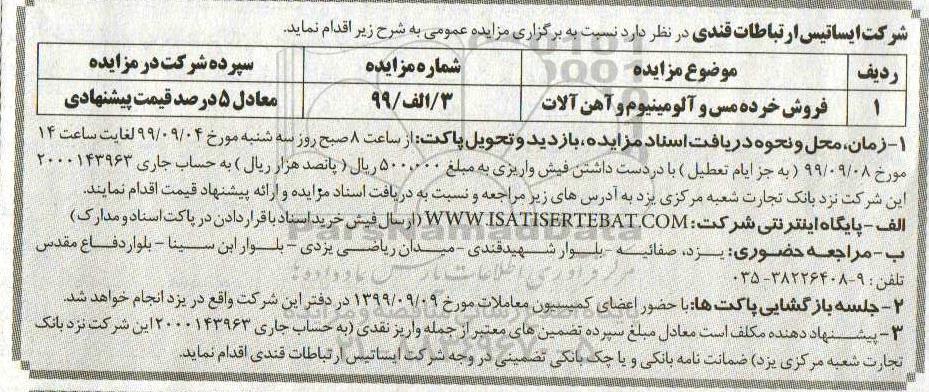 شرکت ایساتیس ارتباطات قندی در نظر دارد نسبت به برگزاری مزایده عمومی به شرح زیر اقدام نماید.
ردیف موضوع مزایده شماره مزایده سپرده شرکت در مزایده
۱ فروش خرده مس و آلومینیوم و آهن آلات ۳/الف/۹۹ معادل ۵ درصد قیمت پیشنهادی
۱- زمان، محل و نحوه دریافت اسناد مزایده، بازدید و تحویل پاکت: از ساعت ۸ صبح روز سه شنبه مورخ ۹۹/۰۹/۰۴ لغایت ساعت ۱۴
مورخ ۹۹/۰۹/۰۸ ( به جز ایام تعطیل ) با در دست داشتن فیش واریزی به مبلغ ۵۰۰,۰۰۰ ریال ( پانصد هزار ریال ) به حساب جاری ۲۰۰۰۱۴۳۹۶۳
این شرکت نزد بانک تجارت شعبه مرکزی یزد به آدرس های زیر مراجعه و نسبت به دریافت اسناد مزایده و ارائه پیشنهاد قیمت اقدام نمایند.
الف - پایگاه اینترنتی شرکت: WWW.ISATISERTEBAT.COM (ارسال فیش خرید اسناد با قرار دادن در پاکت اسناد و مدارک )
ب- مراجعه حضوری: یزد، صفائیه - بلوار شهید قندی - میدان ریاضی یزدی - بلوار ابن سینا - بلوار دفاع مقدس
تلفن: ۹-۳۸۲۲۶۴۰۸-۰۳۵
۲- جلسه بازگشایی پاکت ها: با حضور اعضای کمیسیون معاملات مورخ ۱۳۹۹/۰۹/۰۹ در دفتر این شرکت واقع در یزد انجام خواهد شد.
۳- پیشنهاد دهنده مکلف است معادل مبلغ سپرده تضمین های معتبر از جمله واریز نقدی (به حساب جاری ۲۰۰۰۱۴۳۹۶۳ این شرکت نزد بانک
تجارت شعبه مرکزی یزد) ضمانت نامه بانکی و یا چک بانکی تضمینی در وجه شرکت ایساتیس ارتباطات قندی اقدام نماید.